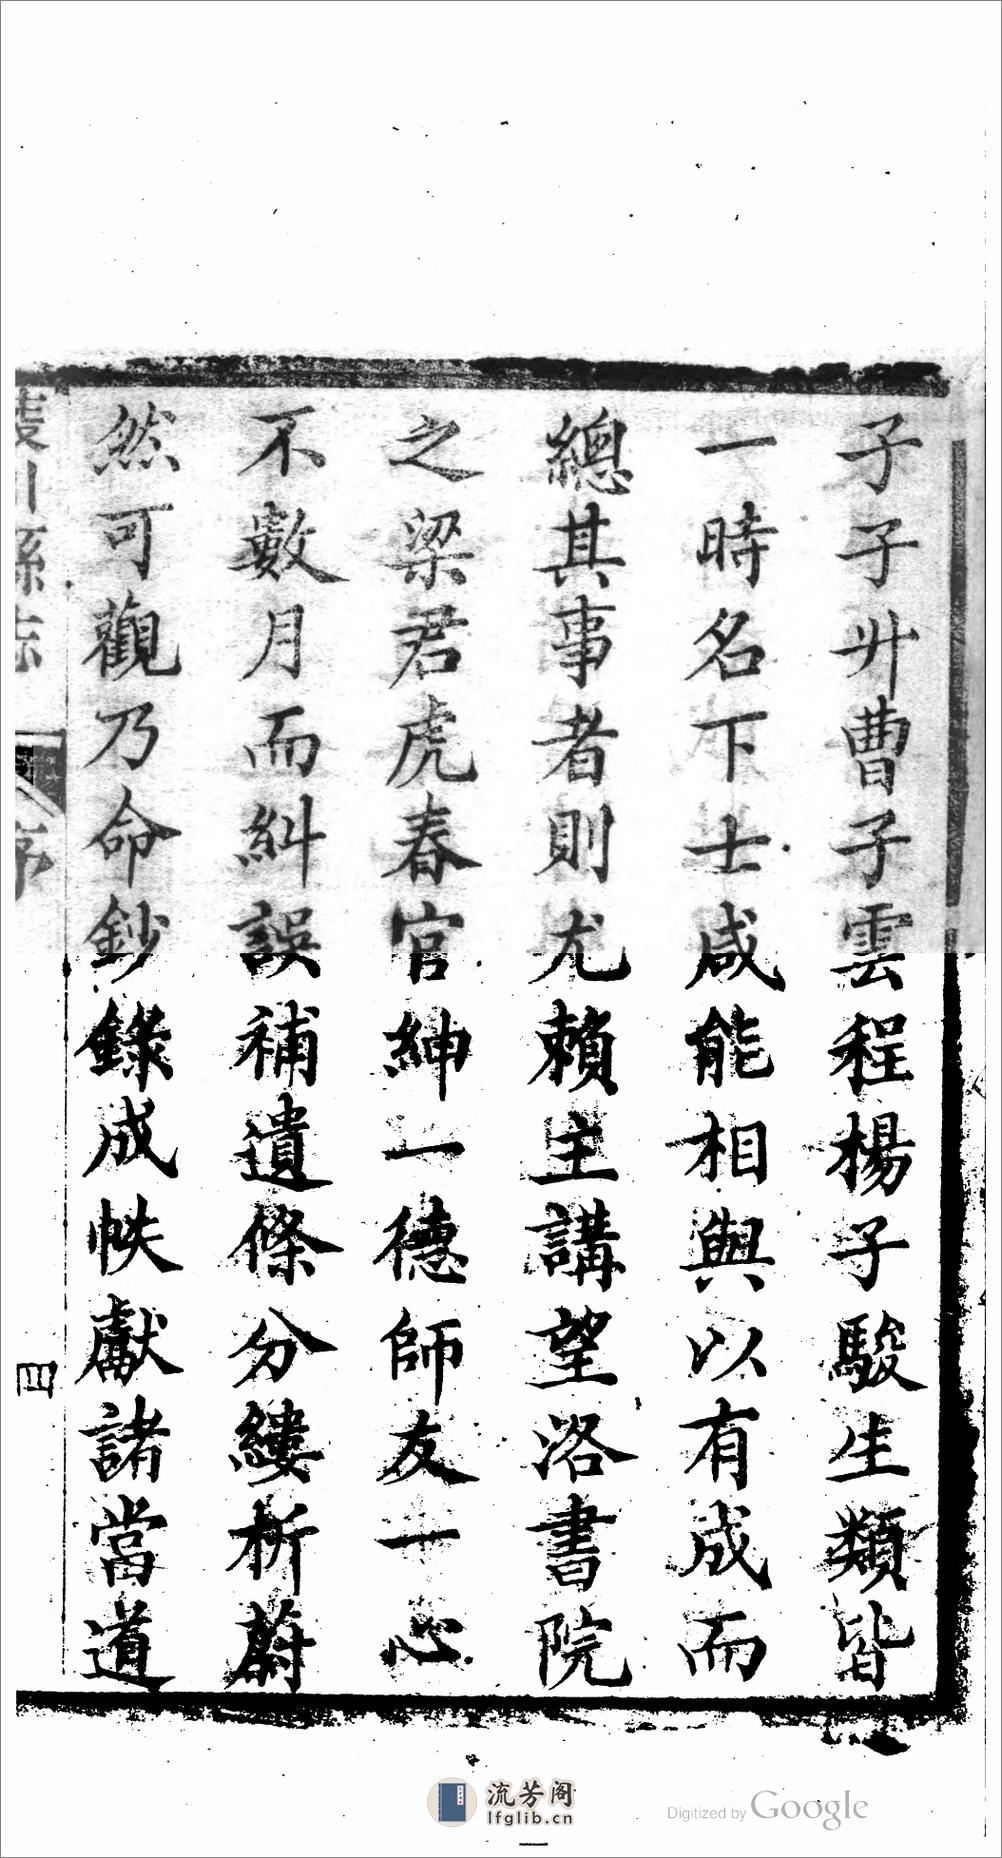 子子廾曹子雲程楊子駿生類皆
一時名下士咸能相與以有成而
總其事者則尤賴主講望洛書院
之梁君虎春官紳一德師友一心
不數月而糾誤補遺條分縷析蔚
然可觀乃命鈔錄成帙獻諸當道
序
四
流芳阁
lfglib.cn
Digitized by Google